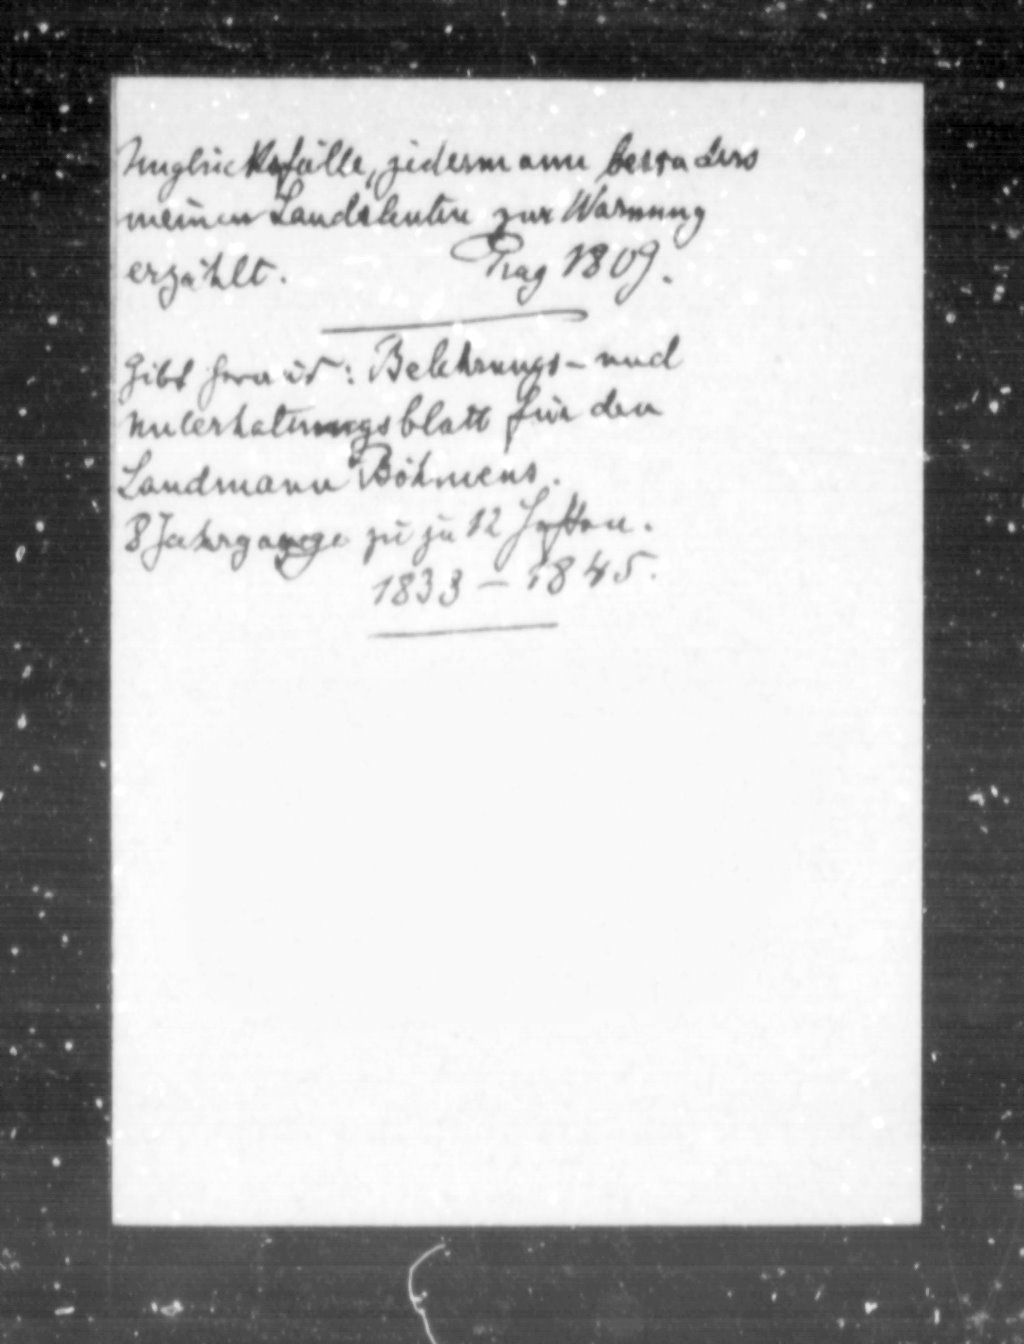 Unglücksfälle, jedermann besonders
meinen Landsleuten zur Warnung
erzählt. Prag 1809.
Gibt heraus: Belehrungs- und
Unterhaltungsblatt für den
Landmann Böhmens.
8 Jahrgange zu je 12 Heften.
1833 - 1845.